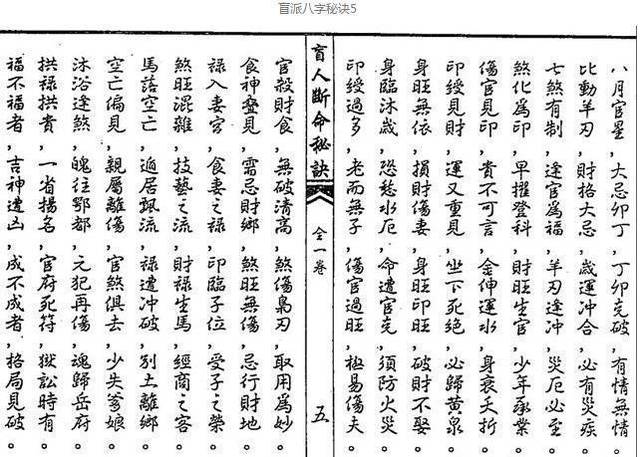 盲派八字秘诀5
八月官星，大忌卯丁，丁卯克破，有情無情。
比動羊刃，財格大忌，歲運冲合，必有災疾。
七煞有制，逢官為福，羊刃逢冲，災厄必至。
煞化為印，早擢登科，財旺生官，少年承業。
傷官見印，貴不可言，金神運水，身衰夭折。
印綬見財，運又重見，坐下死絕，必歸黃泉。
身旺無依，損財傷妻，身旺印旺，破財不娶。
身臨沐歲，恐愁水厄，命遭官克，須防火災。
印綬過多，老而無子，傷官過旺，極易傷夫。
盲人斷命秘訣
全一卷
五
官殺財食，無破清高，煞傷梟刃，取用為妙。
食神疊見，需忌財鄉，煞旺無傷，忌行財地。
禄入妻宮，食妻之禄，印臨子位，受子之榮。
煞旺混雜，技藝之流，財禄生馬，經商之客。
馬落空亡，遁居飄流，禄遭冲破，別土離鄉。
空亡偏見，親屬離傷，官煞俱去，少失爹娘。
沐浴逢煞，魄往鄷都，元犯再傷，魂歸岳府。
拱禄拱貴，一省揚名，官府死符，獄訟時有。
福不福者，吉神遭凶，成不成者，格局見破。